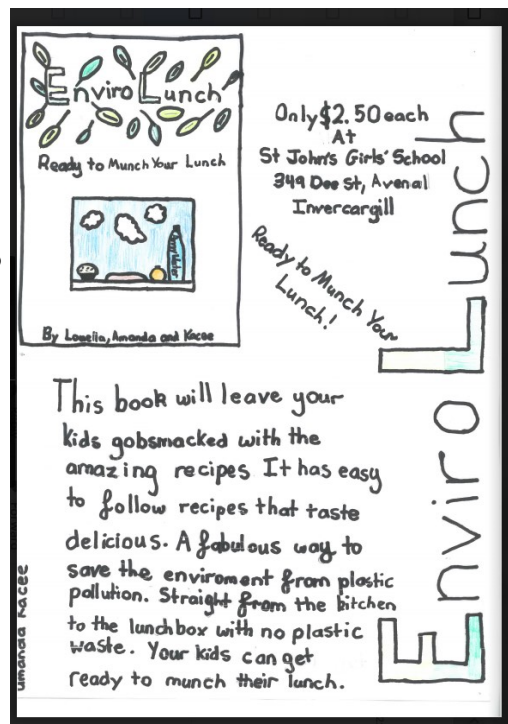 Enviro Lunch
Ready to Munch Your Lunch
By Louella, Amanda and Kacee
Only $2.50 each
At
St John's Girls' School
349 Dee St, Avenal
Invercargill
Ready to Munch Your
Lunch!
Enviro Lunch
This book will leave your
kids gobsmacked with the
amazing recipes It has easy
to follow recipes that taste
delicious. A fabulous way to
save the enviroment from plastic
pollution. Straight from the kitchen
to the lunchbox with no plastic
waste. Your kids can get
ready to munch their lunch.
amanda Kacee